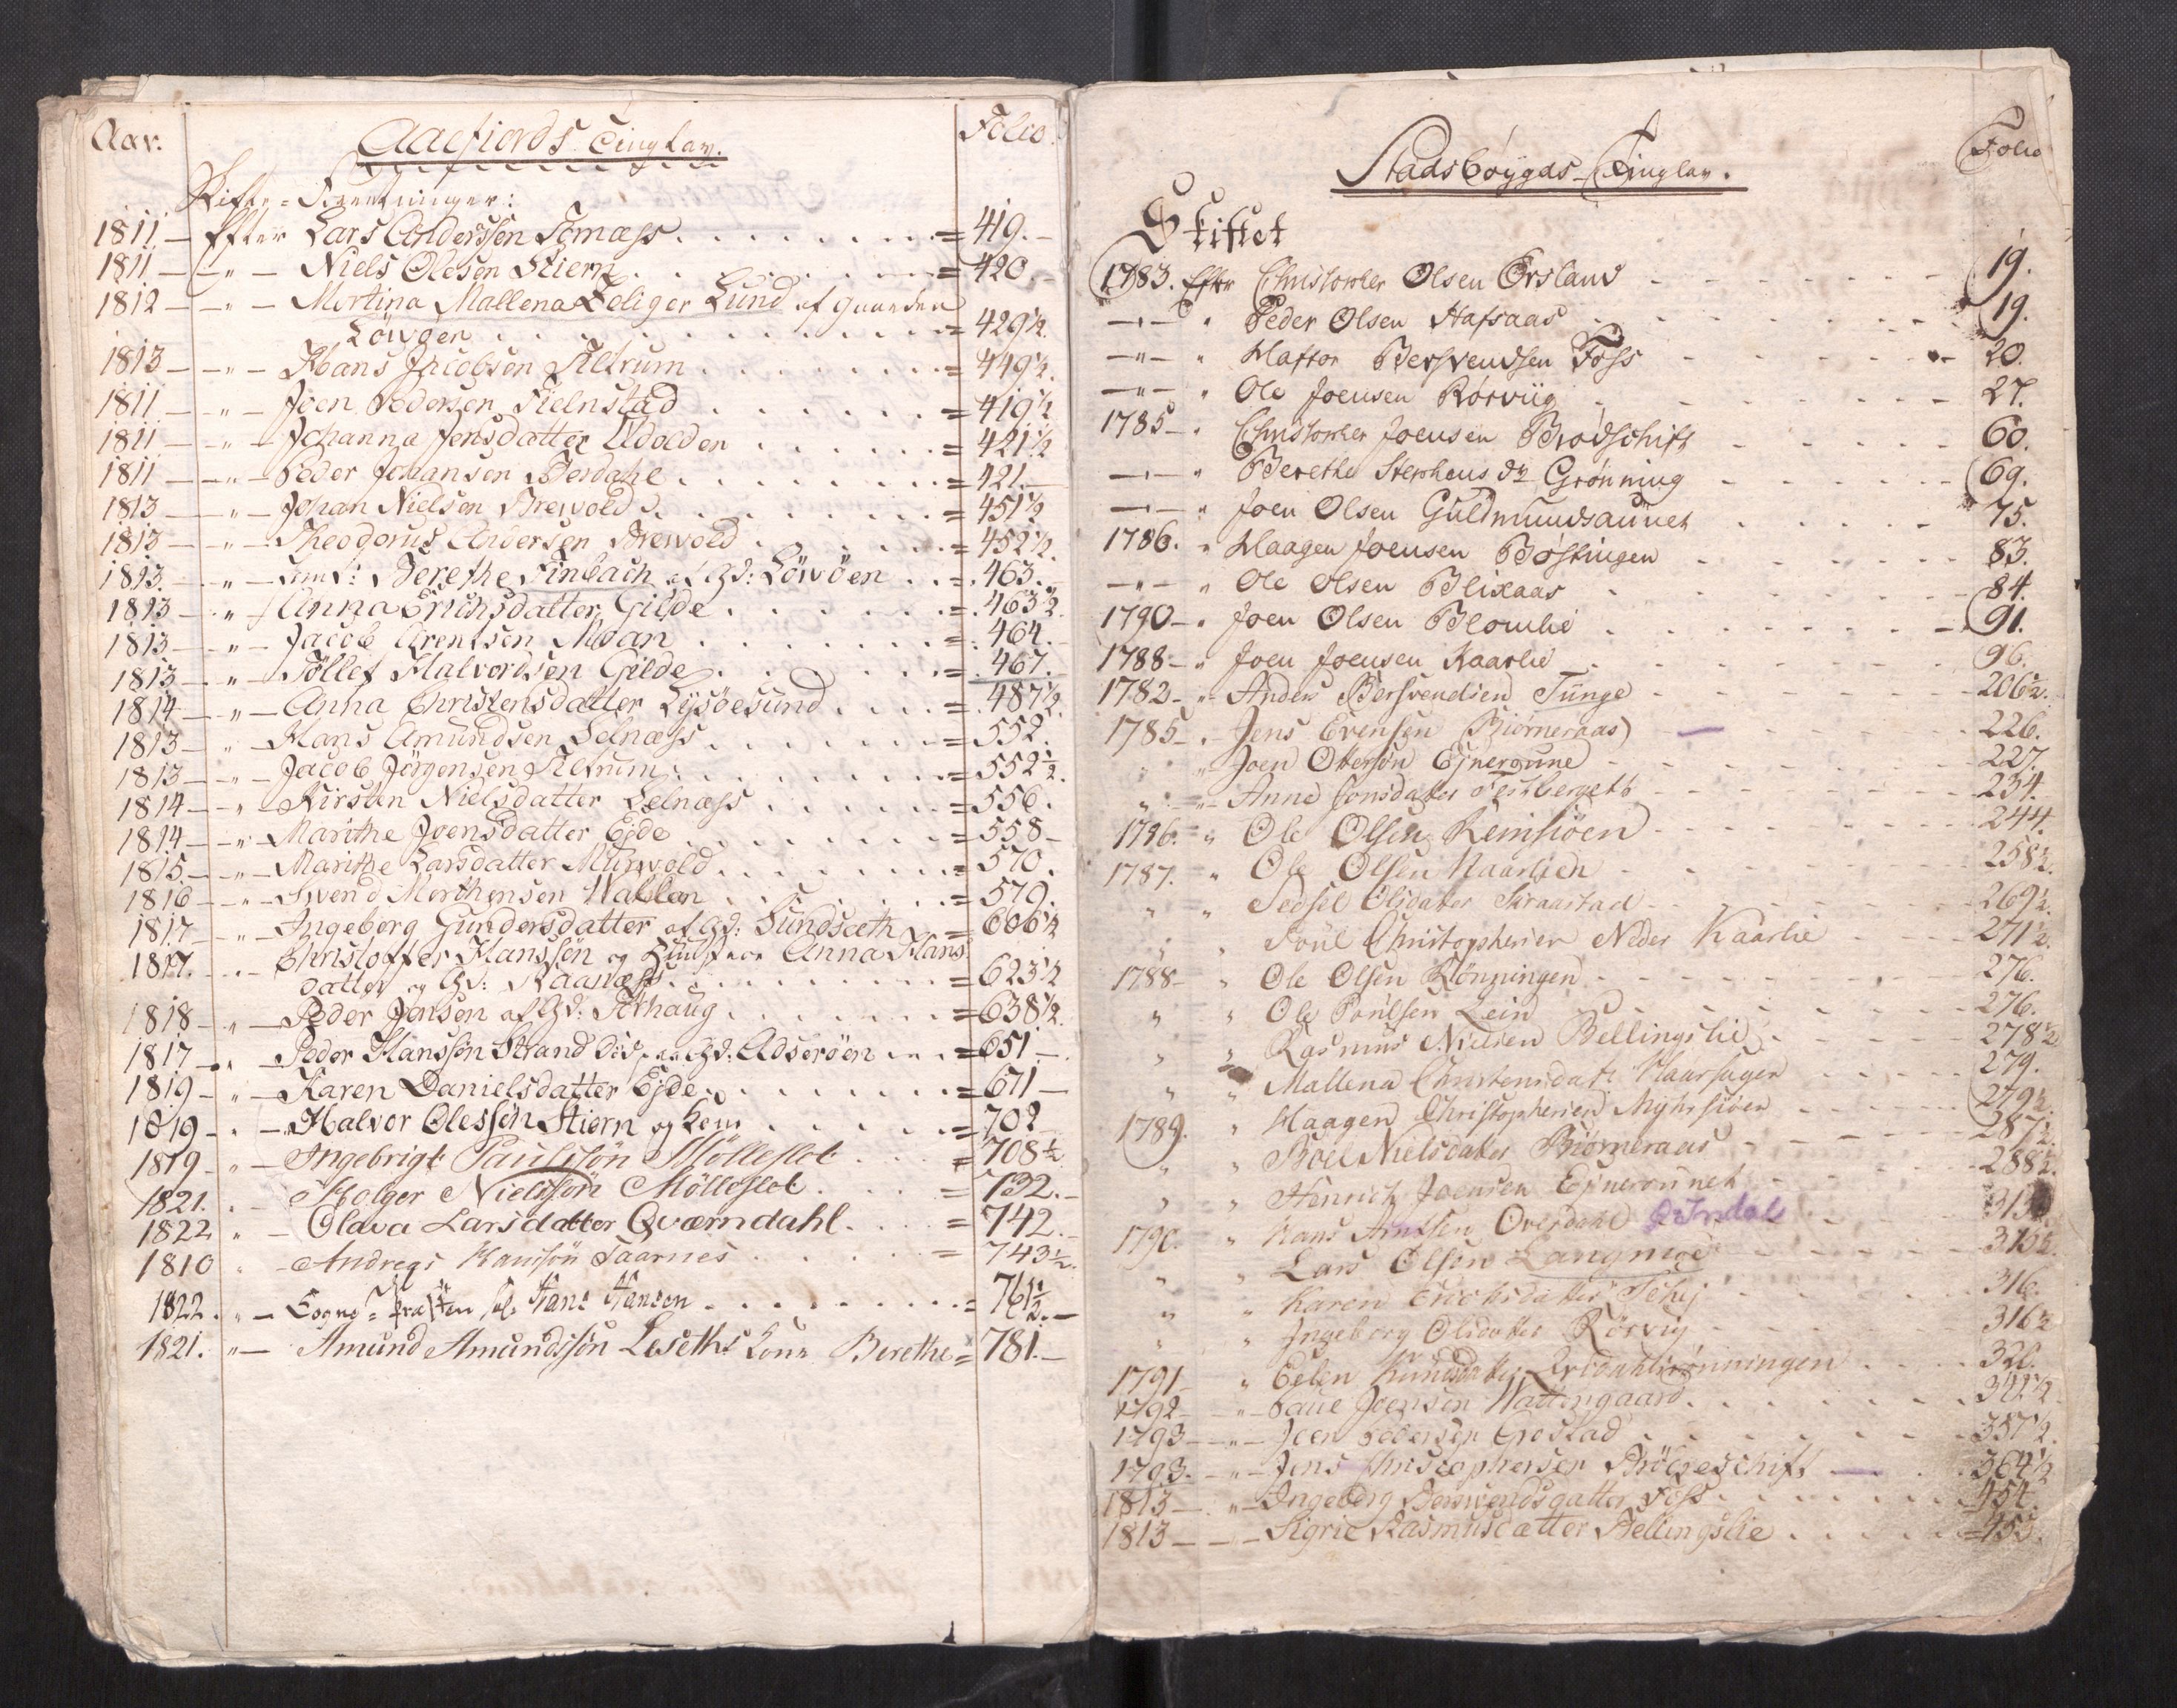 Aar. Aaefiords Tinglav. Folio.
Skifte-Forretninger:
1811 — Efter Lars Anderssen Somæss = 419.
1811 — " — Niels Olesen Stiern = 420.
1812 — " — Mortina Mallena Zeliger Lund af gaarden
Löwøen = 429½
1813 — " — Hans Jacobsen Aletrum = 449½
1811 — " — Joen Pedersen Fielnstad = 419½
1811 — " — Johanna Jensdatter Udolden = 421½
1811 — " — Peder Johansen Berdahl = 421.
1813 — " — Johan Nielsen Brewold = 451½
1813 — " — Theodorus Andersen Brewold = 452½
1813. " — Berethe Finbach af Gd: Löwöen = 463.
1813 — " — Anna Erichsdatter Gilde = 463½
1813 — " — Jacob Arentsen Moan = 464.
1813 — " — Tollef Halvordsen Gilde = 467.
1814 — " — Anna Christensdatter Lysöesund = 487½
1813 — " — Hans Amundsen Selnæss = 552.
1813 — " — Jacob Jörgensen Aletrum = 552½.
1814 — " — Kirsten Nielsdatter Selnæss = 556.
1814 — " — Marithe Joensdatter Eide = 558
1815. — " — Marithe Larsdatter Murvold = 570.
1816 — " — Svend Morthensen Hablen = 579.
1817 — " — Ingeborg Gundersdatter af Gd: Sundsæth = 606½
1817. " — Christoffer Hanssön og Hustrue Anna Hans
datter og Gd: Raanæss = 623½
1818 — " — Peder Jensen af Gd: Athaug = 638½
1817 — " — Peder Hanssön Strand Gd: Adseröen = 651
1819 — " — Karen Danielsdatter Eide = 671
1819 — " — Halvor Olessøn Stiern og Kone = 702
1819 — " — Ingebrigt Paulssön Mölleslot = 708½
1821. " — Holger Nielssön Mölleslot = 732.
1822 " — Olava Larsdatter Qværndahl = 742.
1810 " — Andreas Hanssön Taarnes = 743½.
1822. " — Sogne-Præsten Sl. Hans Hansen = 761½.
1821. " — Amund Amundssøn Leseths Kone Berethe = 781.
Stadsbøygds-Tinglav. Folio
Skiftet
1783. Efter Christopher Olsen Ørsland 19.
— " — " Peder Olsen Hafsaas 19.
— " — " Haftor Bersvendsen Foss 20.
— " — " Ole Joensen Rørviig 27.
1785 — " Christopher Joensen Brødschift 60.
— " — " Berethe Stephens Dr Grønning 69.
— " — " Joen Olsen Guldmundsaunet 75.
1786. " Haagen Joensen Bøstingen 83.
— " — " Ole Olsen Blixaas 84.
1790 — " Joen Olsen Blomlie 91.
1788 — " Joen Joensen Kaarlie 96.
1782 — " Anders Bersvendsen Tunge 206½.
1785 — " Jens Evensen Biørneraas) 226.
" " Joen Ottersøn Ejneroune 227.
" " — Anne Jonsdatter Feshberget 234.
1786. " Ole Olsen Reinsiøen 244.
1787. " Ole Olsen Kaarlien 258½.
" " Sedsel Olsdatter Skraastad 269½.
" " Povel Christophersen Neder Kaarlie 271½.
1788 — " Ole Olsen Rönningen 276.
" " Ole Poulsen Lein 276.
" " Rasmus Nielsen Bellingslie 278½
" " Mallena Christensdatr Haarhagen 279.
1789. " Haagen Christophersen Myhrsiøen 279½.
" " Boel Nielsdatter Biørneraas 287½.
" " Henrich Joensen Ejnerounet 288½.
1790. " Hans Arntsen Ovredahl 313
" " Lars Olsen Langmoe 315½.
" " Karen Erichsdatter Schej 316.
" " Ingeborg Olsdatter Rørvig 316½
1791 " Eelen Knudsdatter rönningen 326.
1792 — " — Paul Joensen Hattengaard. 342½
1793 — " — Joen Pedersen Grostad 357½
1793. — " — Jens Christophersen Bröedschift 364½
1813 — " — Ingeborg Berswendsdatter Foss 454.
1813 — — Sigrie Rasmusdatter Bellingslie = 455.